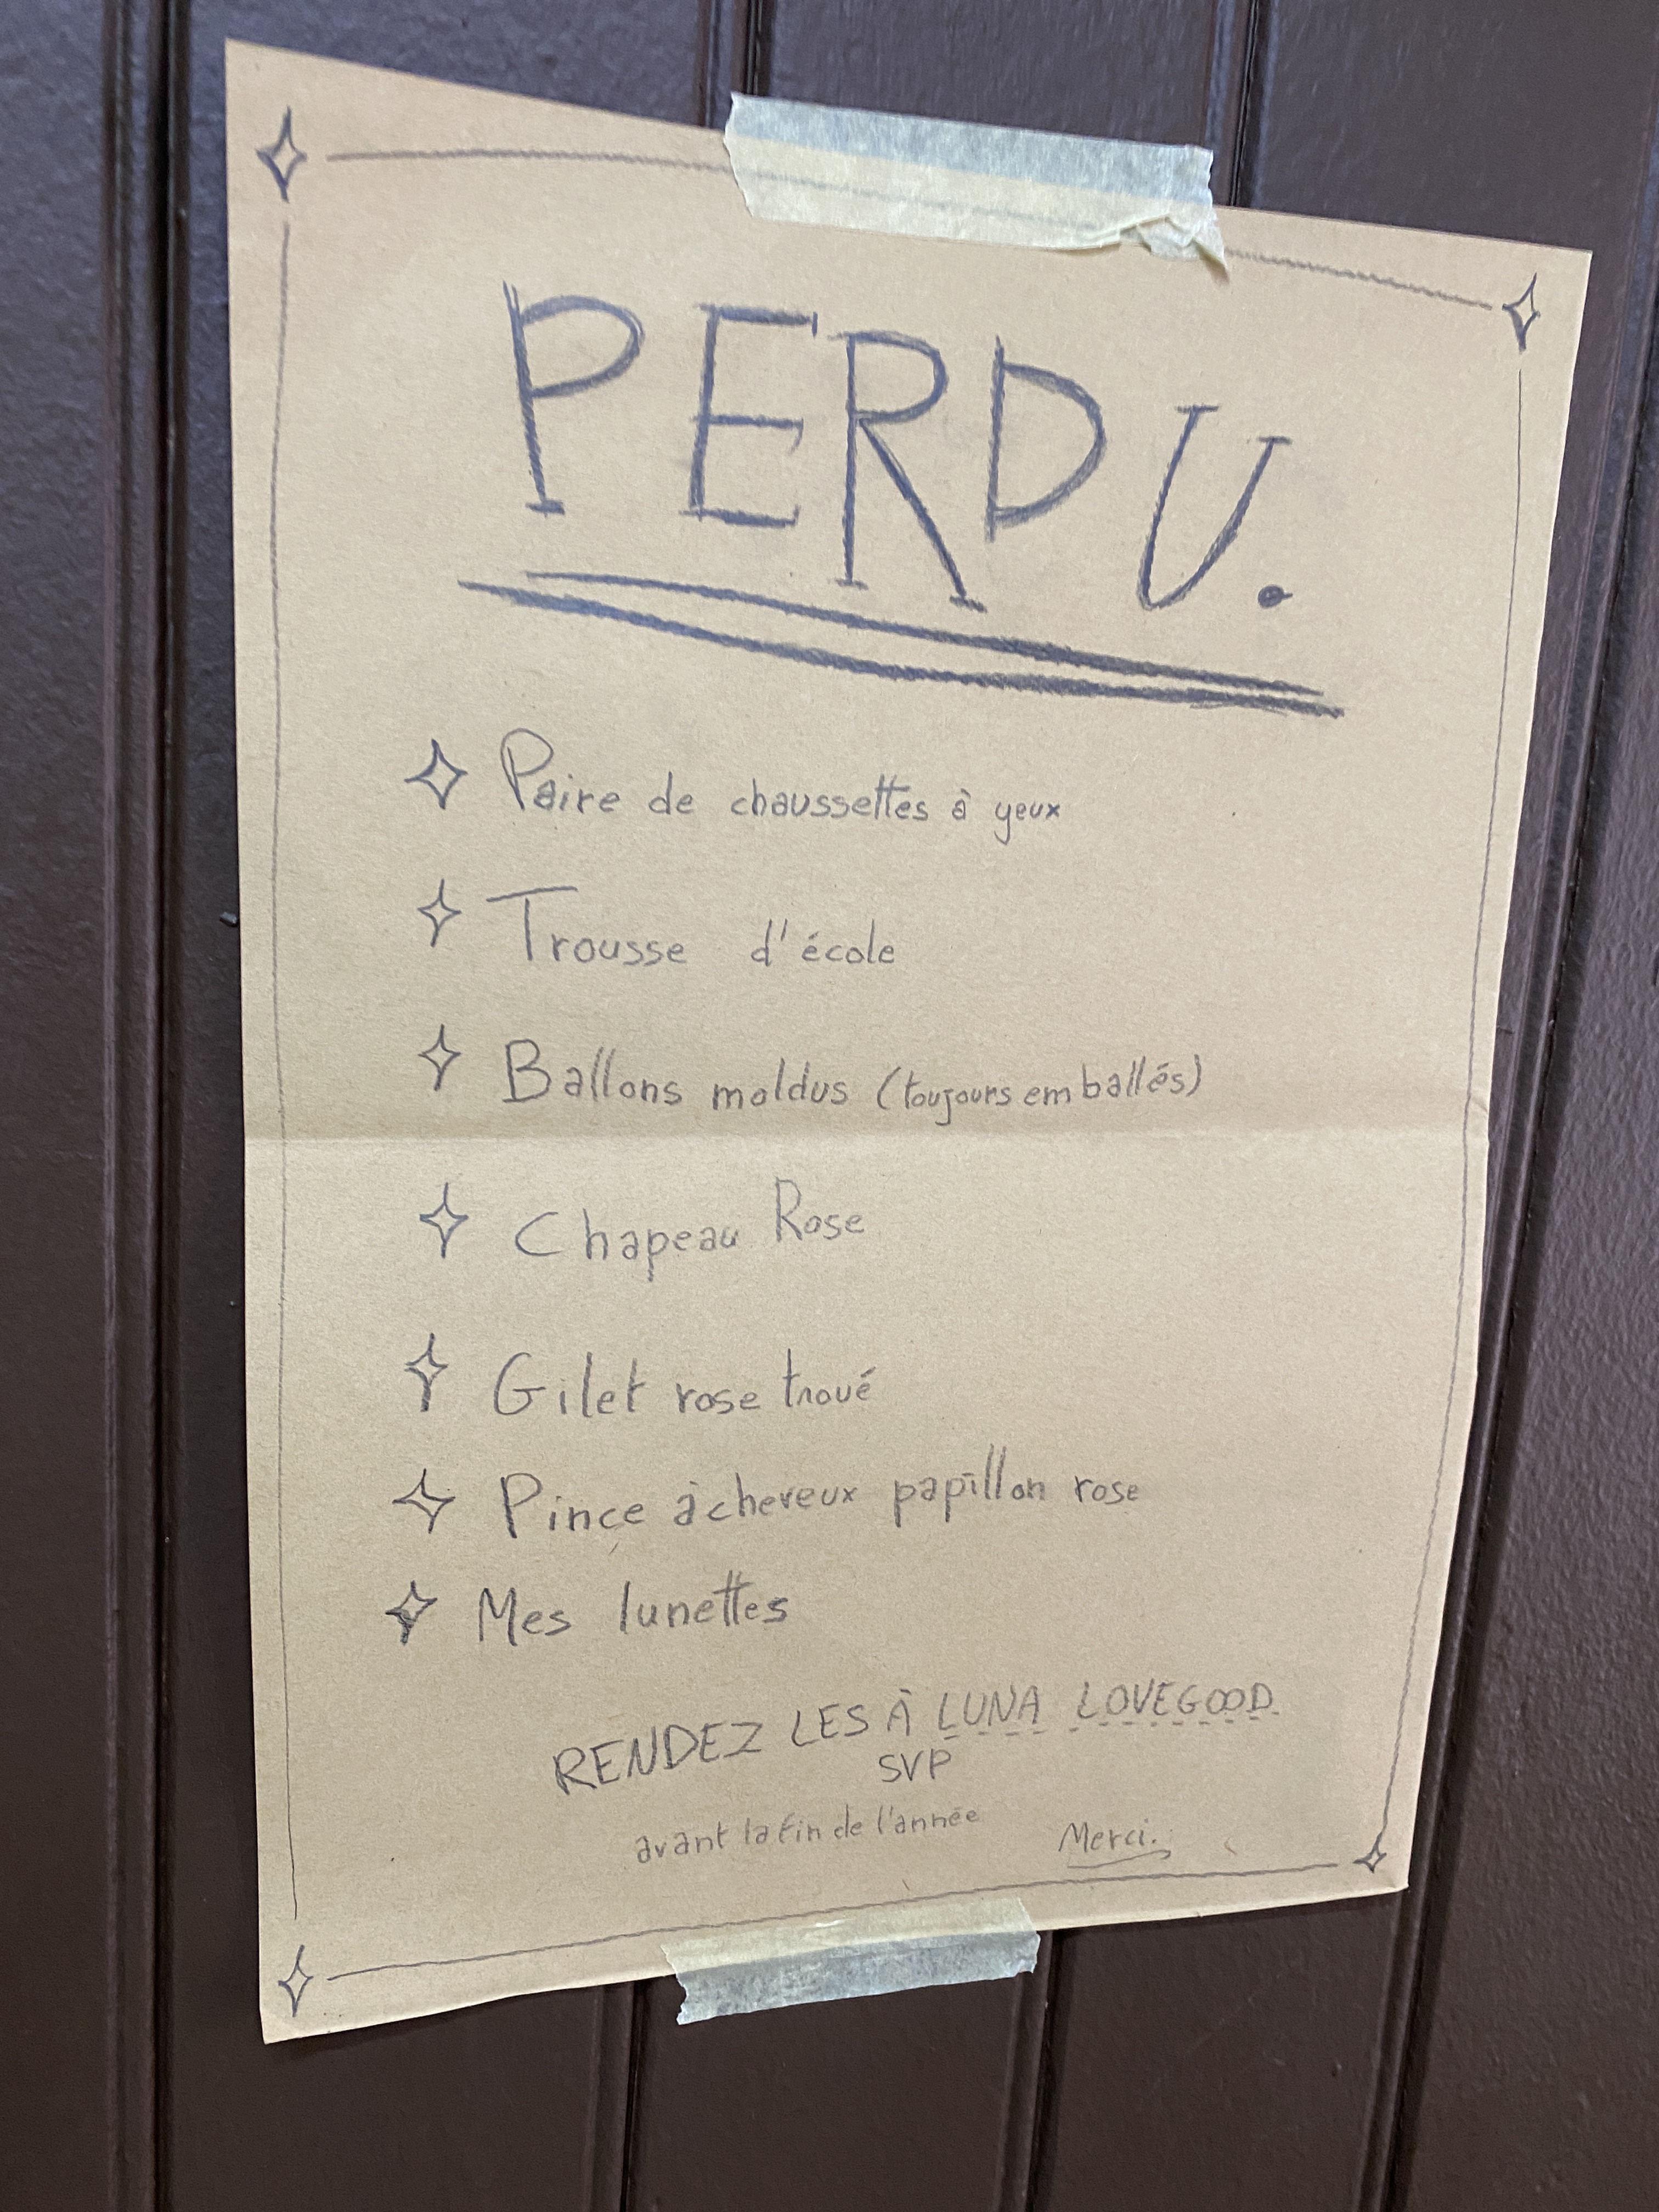 PERDU.
Paire de chaussettes à yeux
Trousse d'école
Ballons moldus (toujours emballés)
Chapeau Rose
Gilet rose troué
Pince à cheveux papillon rose
Mes lunettes
RENDEZ LES À LUNA LOVEGOOD
SVP
avant la fin de l'année
Merci.